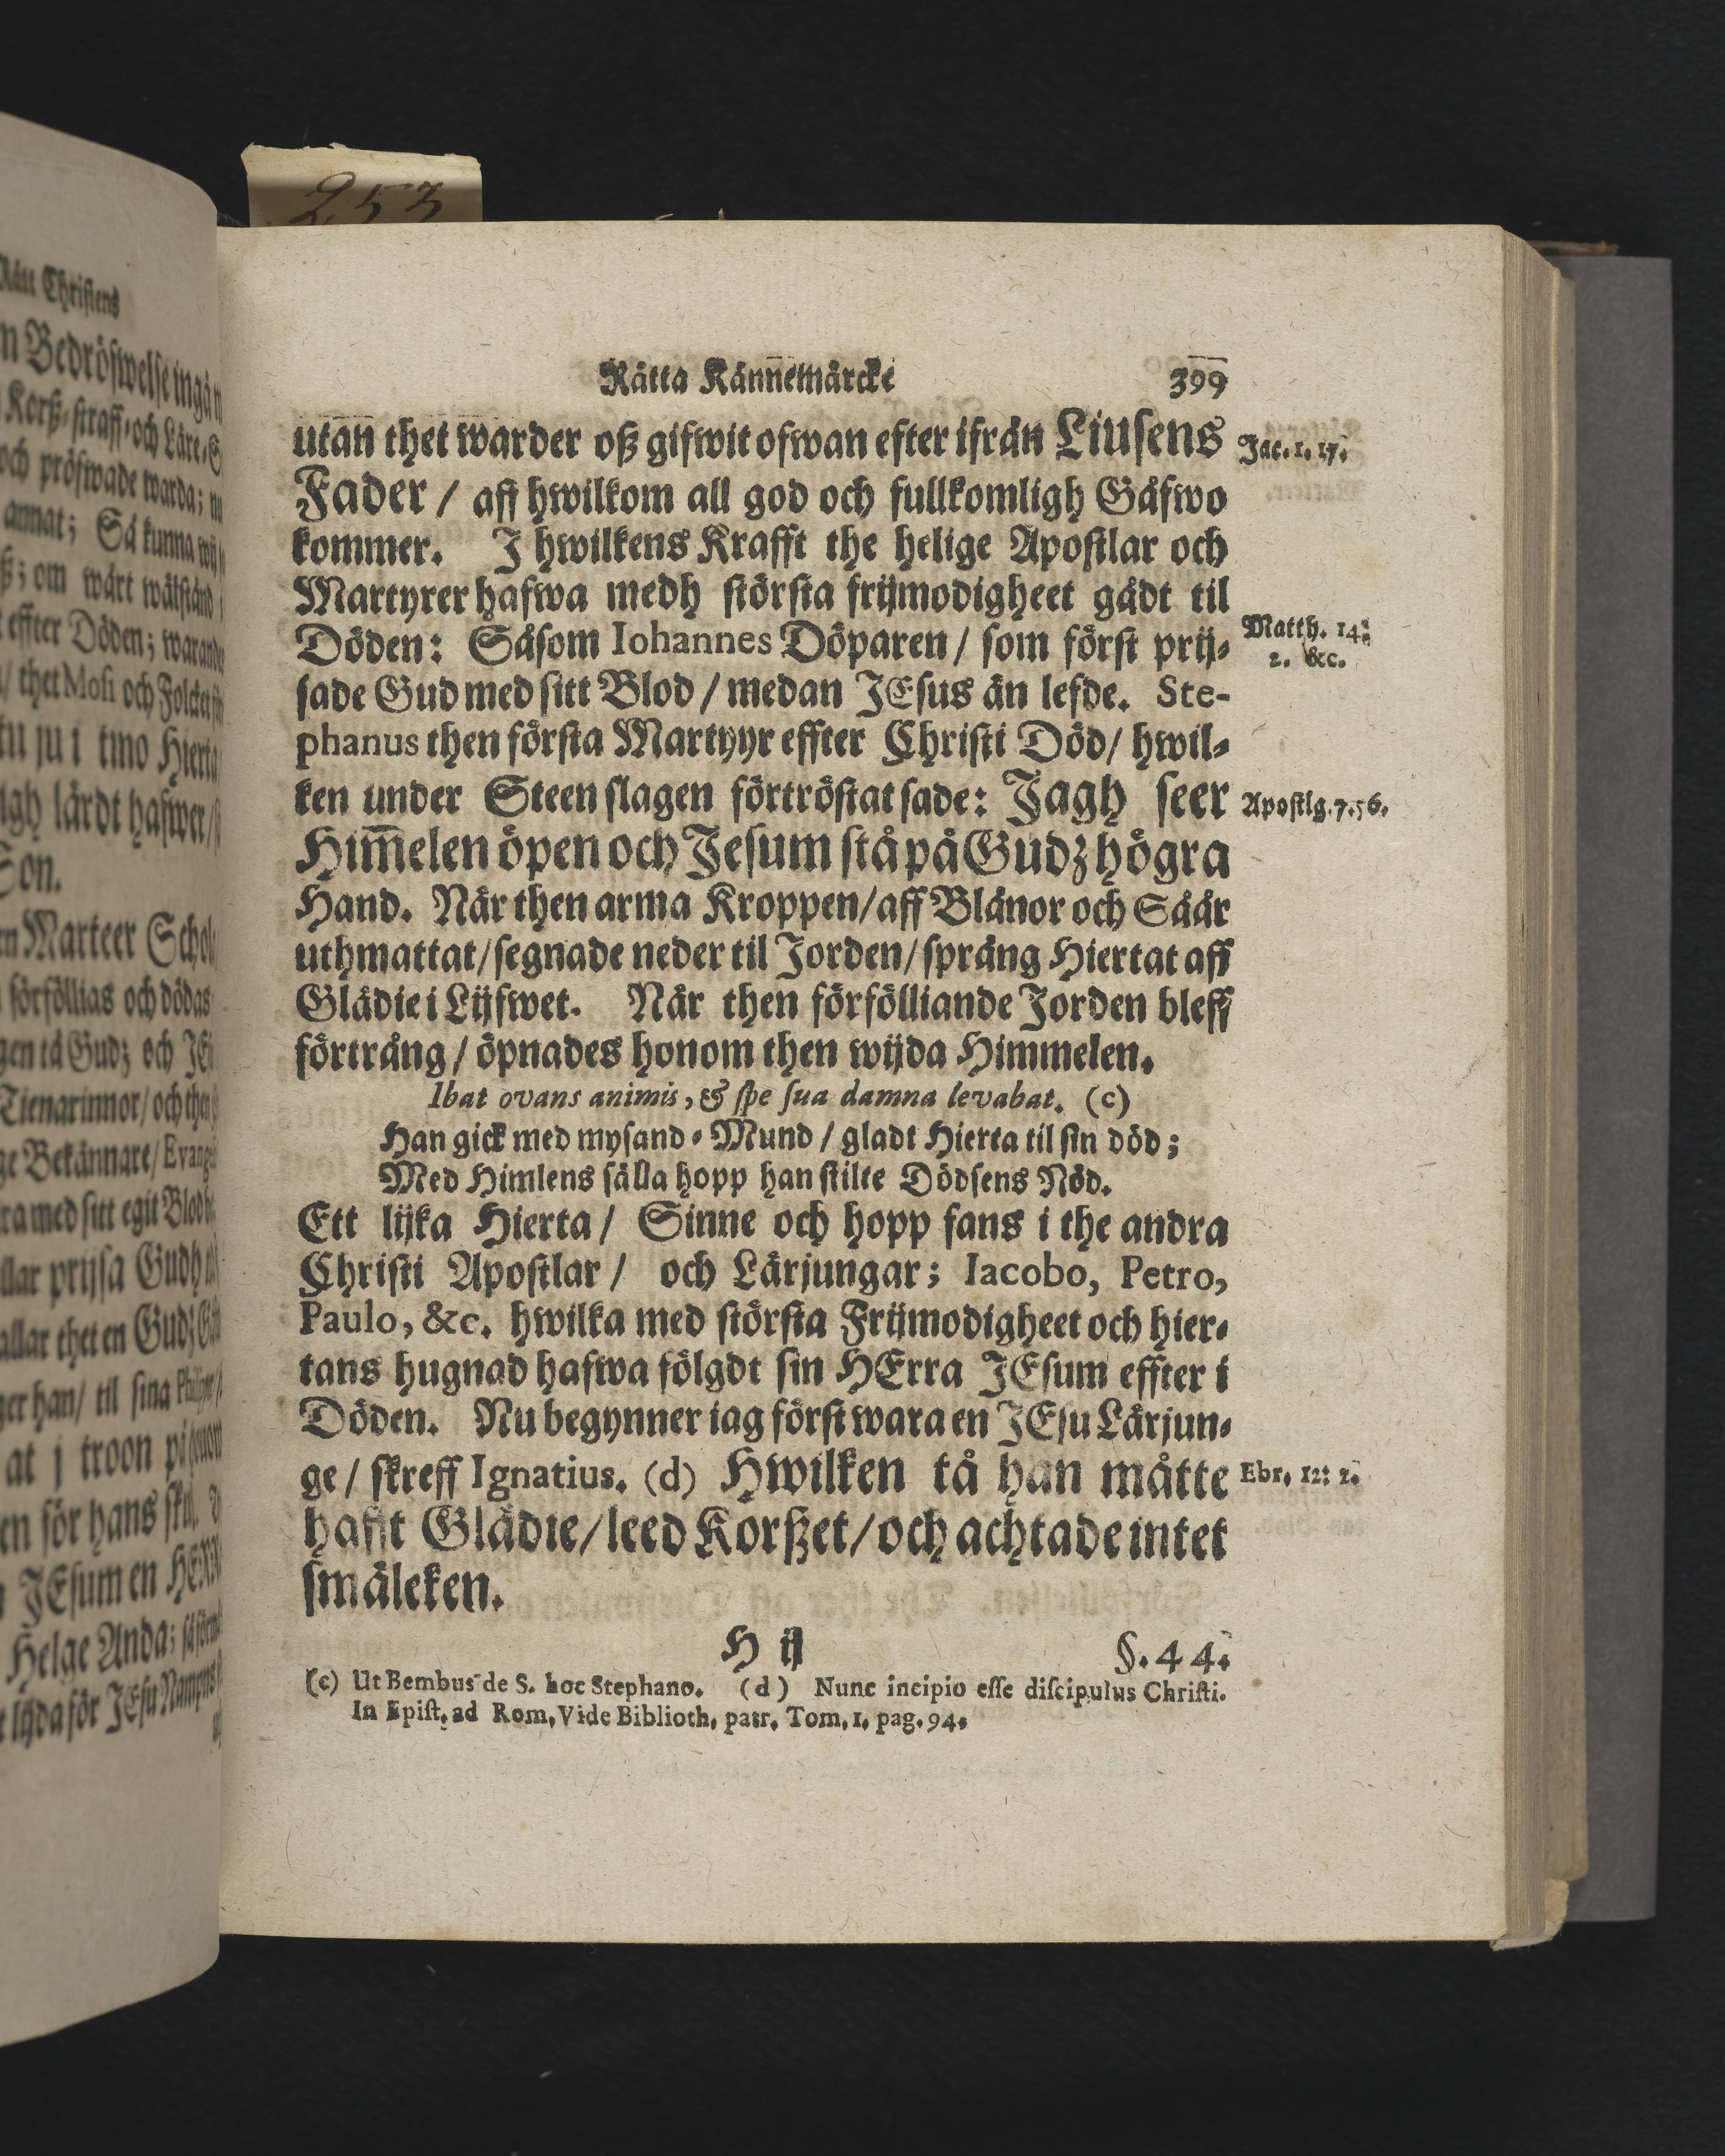 253
Rätta Kännemärcke 399
utan thet warder oß gifwit ofwan efter ifrån Liusens
Jac. 1. 17.
Fader / aff hwilkom all god och fullkomligh Gåfwo
kommer. J hwilkens Krafft the helige Apostlar och
Martyrer hafwa medh största frijmodigheet gådt til
Döden: Såsom Iohannes Döparen / som först prij-
Matth. 14:
2. &c.
sade Gud med sitt Blod / medan JEsus än lefde. Ste-
phanus then första Martyyr effter Christi Död / hwil-
ken under Steen slagen förtröstat sade: Jagh seer
Apostlg. 7. 56.
Him̅elen öpen och Jesum stå på Gudz högra
Hand. När then arma Kroppen / aff Blånor och Såår
uthmattat / segnade neder til Jorden / språng Hiertat aff
Glädie i Lijfwet. När then förfölliande Jorden bleff
förtrång / öpnades honom then wijda Himmelen.
Ibat ovans animis, & spe sua damna levabat. (c)
Han gick med mysand-Mund / gladt Hierta til sin död;
Med Himlens sälla hopp han stilte Dödsens Nöd.
Ett lijka Hierta / Sinne och hopp fans i the andra
Christi Apostlar / och Lärjungar; Iacobo, Petro,
Paulo, &c. hwilka med största Frijmodigheet och hier-
tans hugnad hafwa fölgdt sin HErra JEsum effter i
Döden. Nu begynner iag först wara en JEsu Lärjun-
ge / skreff Ignatius. (d) Hwilken tå han måtte
Ebr. 12: 2.
hafft Glädie / leed Korßet / och achtade intet
smäleken.
H ij §. 44.
(c) Ut Bembus de S. hoc Stephano. (d) Nunc incipio esse discipulus Christi.
In Epist. ad Rom. Vide Biblioth. patr. Tom. 1. pag. 94.